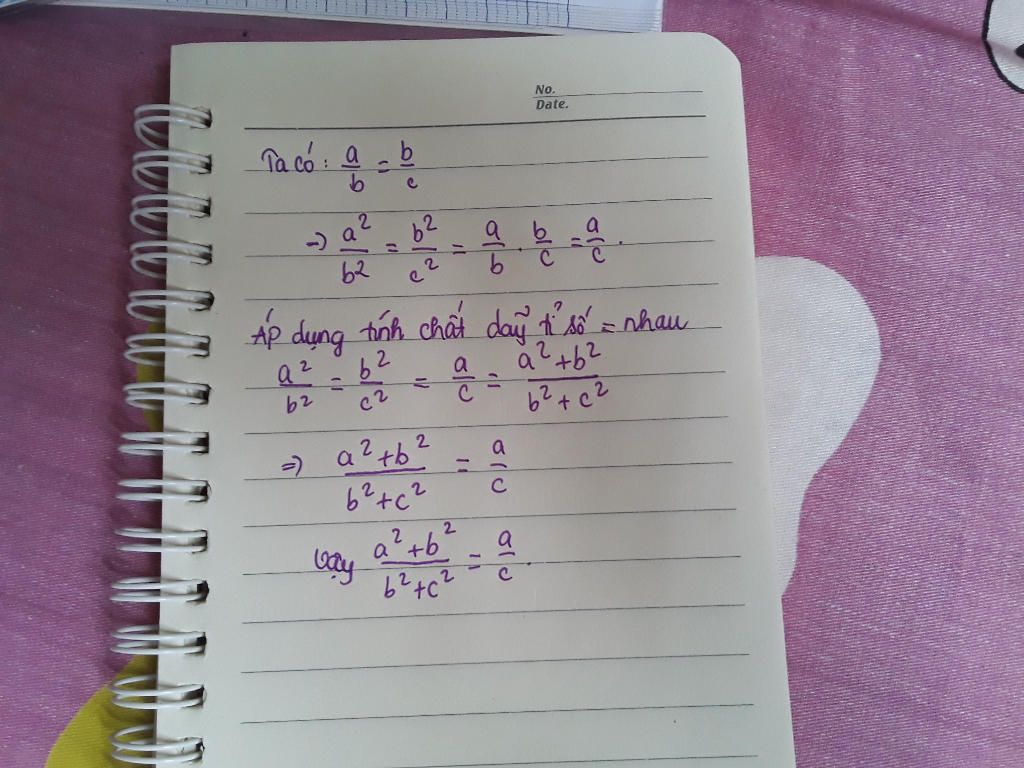 No.
Date.
Ta có: a/b = b/c
=> a²/b² = b²/c² = a/b . b/c = a/c.
Áp dụng tính chất dãy tỉ số = nhau
a²/b² = b²/c² = a/c = (a²+b²)/(b²+c²)
=> (a²+b²)/(b²+c²) = a/c
Vậy (a²+b²)/(b²+c²) = a/c.